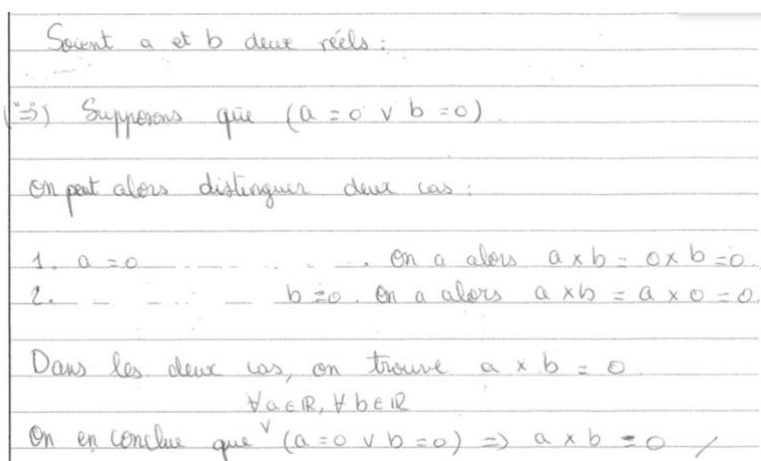 Soient a et b deux réels :
("⇒") Supposons que (a = 0 ∨ b = 0).
On peut alors distinguer deux cas :
1. a = 0 . On a alors a × b = 0 × b = 0.
2. b = 0. On a alors a × b = a × 0 = 0.
Dans les deux cas, on trouve a × b = 0
∀a∈ℝ, ∀b∈ℝ
On en conclue que ∨ (a = 0 ∨ b = 0) ⇒ a × b = 0 /